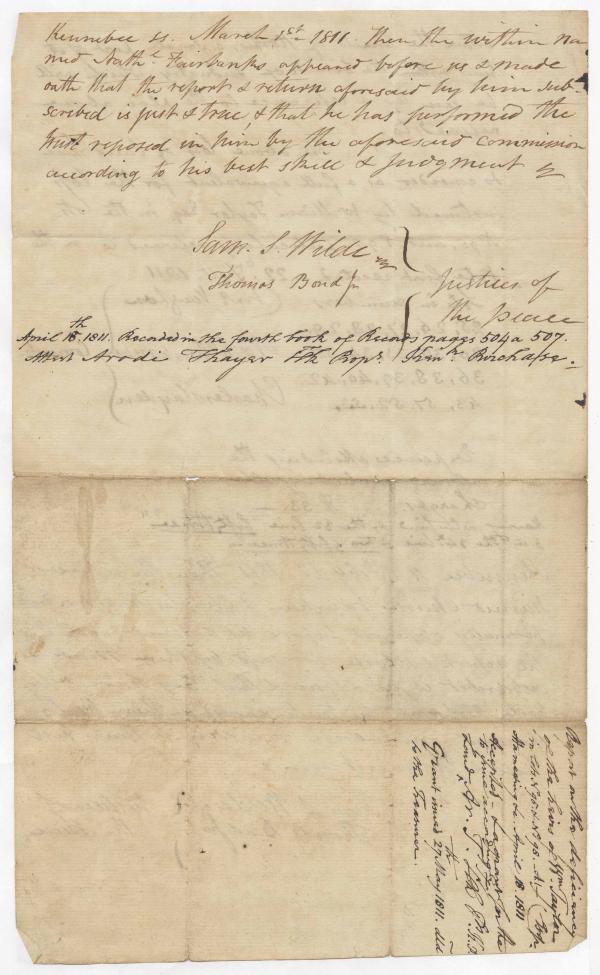 Kennebec ss. March 1st 1811. Then the within na
med Nathl Fairbanks appeared before us & made
oath that the report & return aforesaid by him sub-
scribed is just & true, & that he has performed the
trust reposed in him by the aforesaid commission
according to his best skill & judgment
Sam. S. Wilde
Thomas Bond Jr
Justices of
the peace
April 18th 1811. Recorded in the fourth book of Records pages 504 a 507.
Attest Arodi Thayer Clk Propr. Kenn. Purchase.
Report on the deficiency
of the heirs of Wm Taylor
in lots No 95 & No 98.
April 18 1811
Accepted & a grant for the
Grant issued 27th May 1811. dld
to the Treasurer.